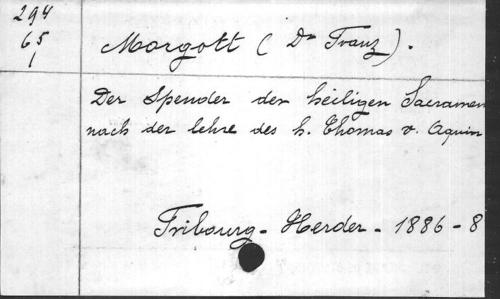 294
65
1
Morgott (Dr Franz).
Der Spender der heiligen Sacramen
nach der lehre des h. Thomas v. Aquin
Fribourg - Herder - 1886 - 8